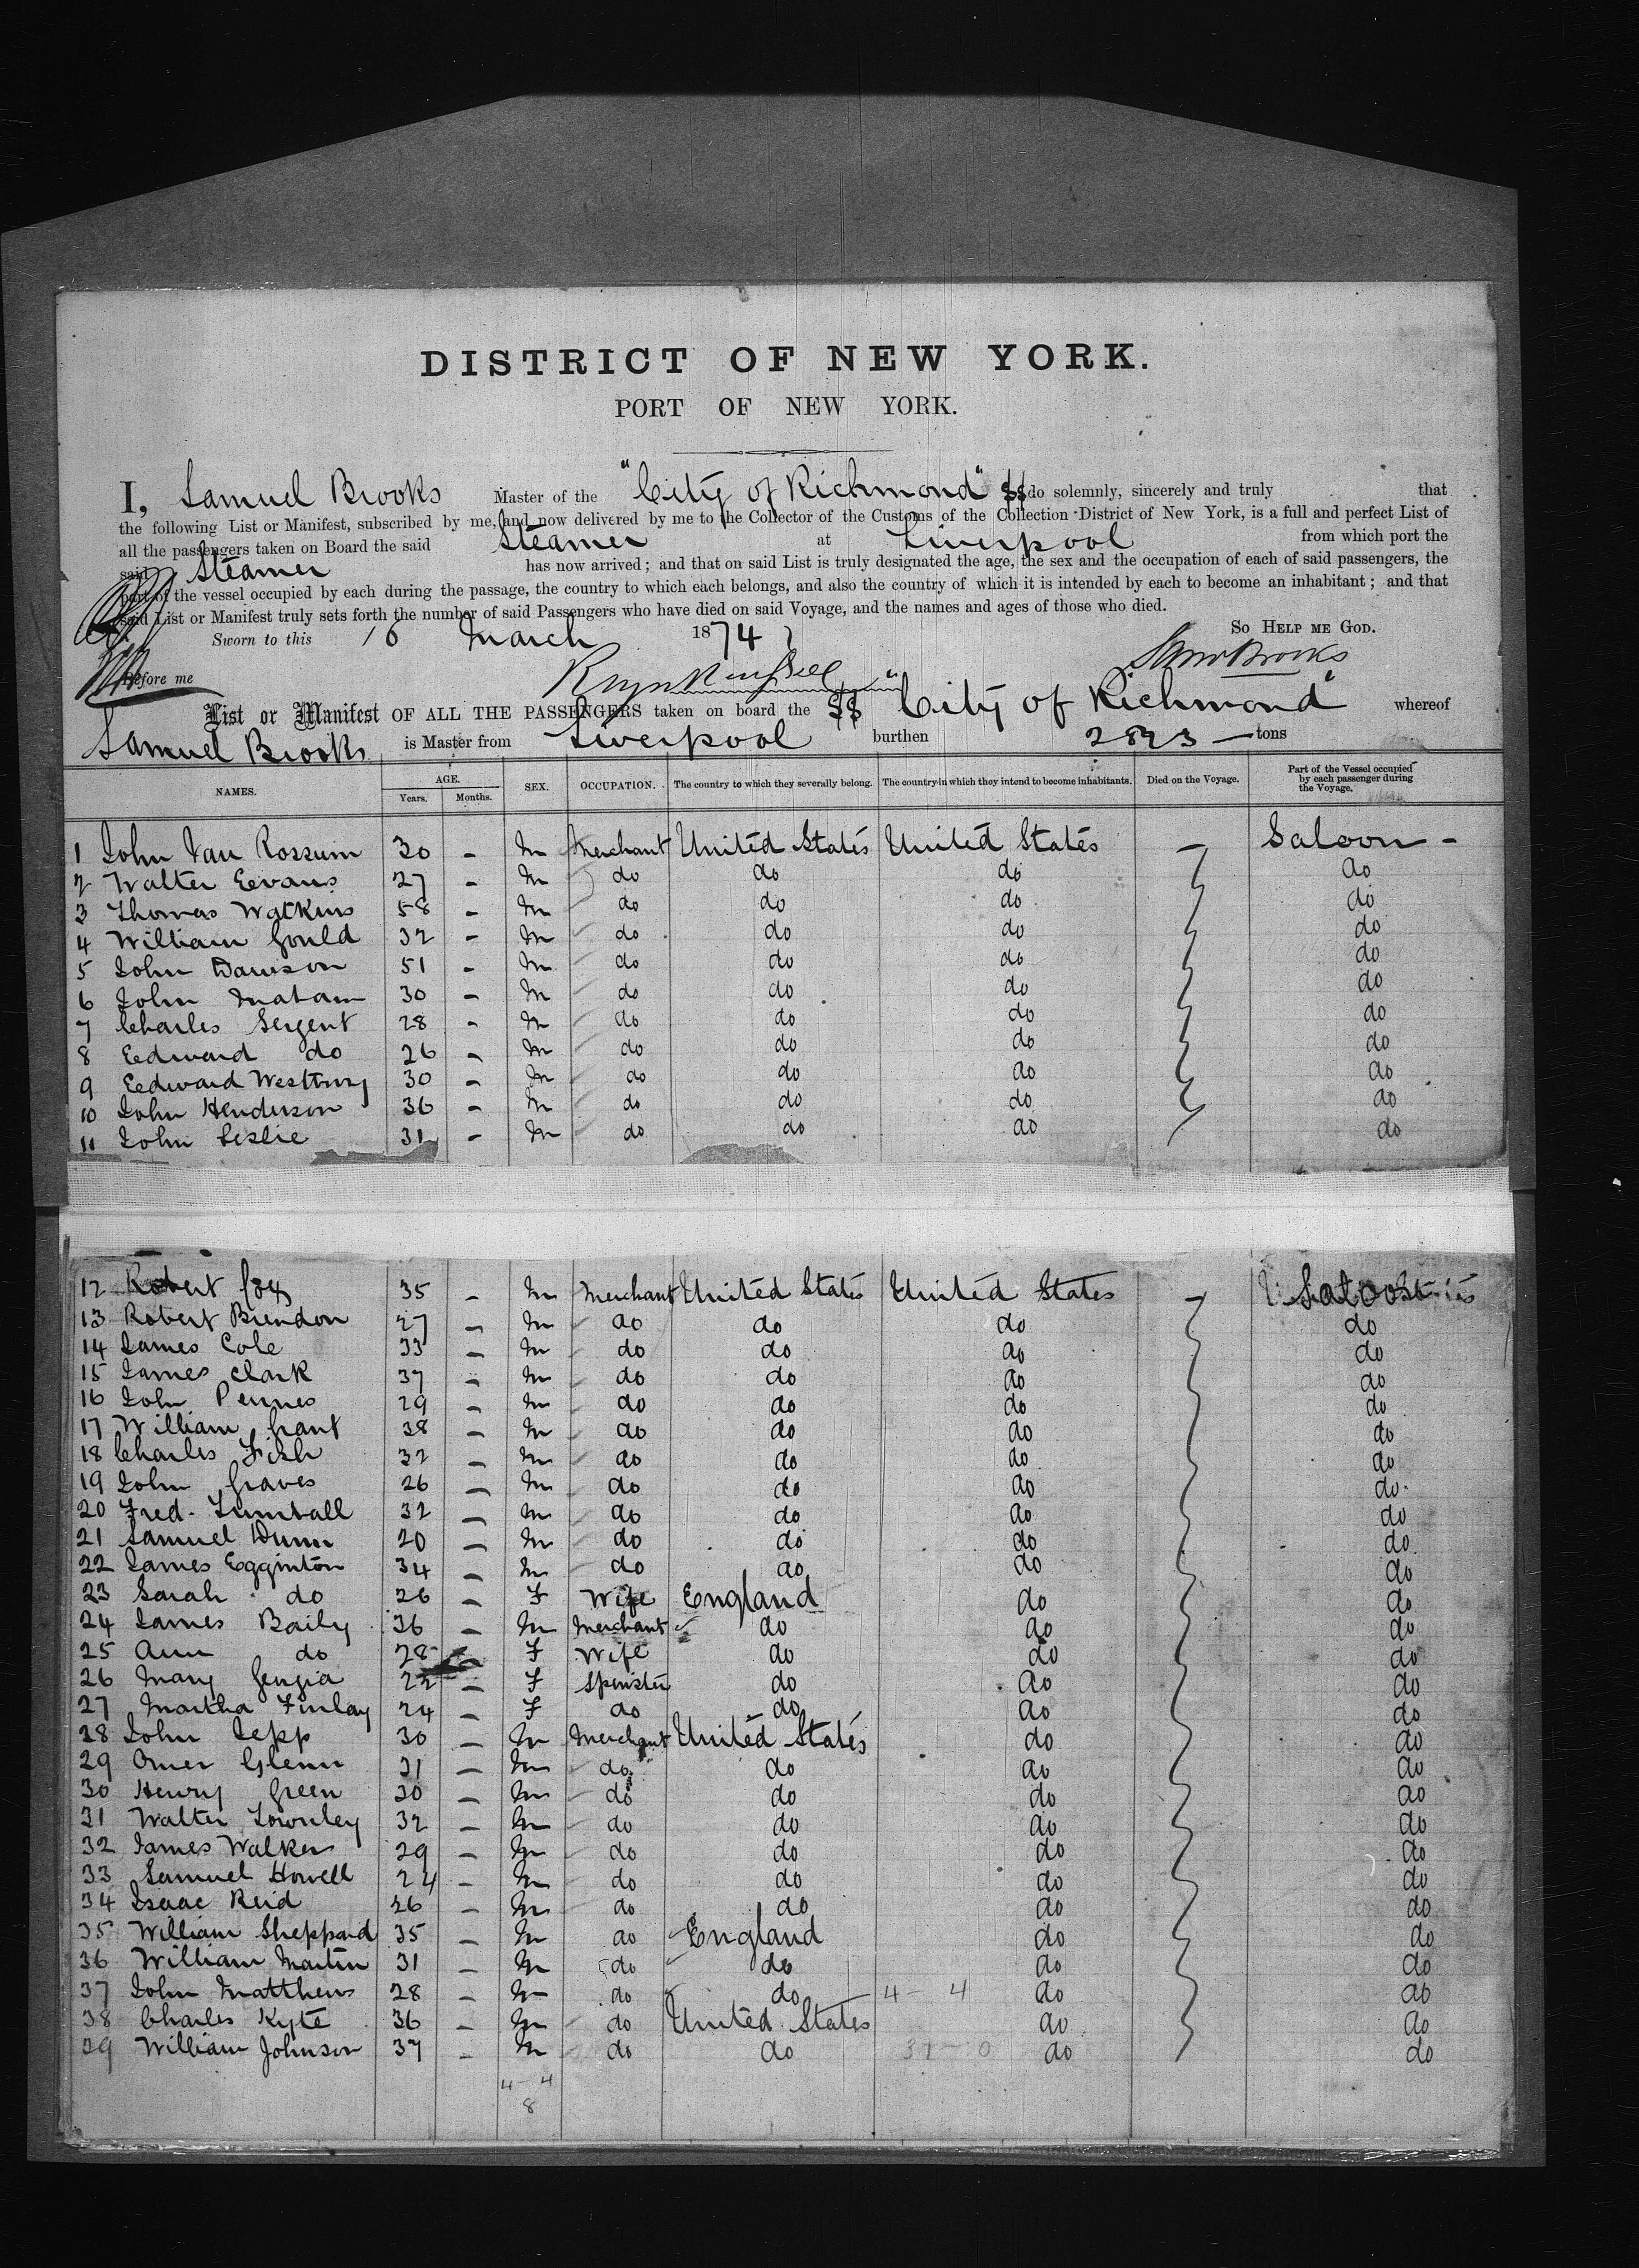 DISTRICT OF NEW YORK.
PORT OF NEW YORK.
I, Samuel Brooks Master of the "City of Richmond" SS do solemnly, sincerely and truly that
the following List or Manifest, subscribed by me, and now delivered by me to the Collector of the Customs of the Collection District of New York, is a full and perfect List of
all the passengers taken on Board the said Steamer at Liverpool from which port the
said Steamer has now arrived; and that on said List is truly designated the age, the sex and the occupation of each of said passengers, the
part of the vessel occupied by each during the passage, the country to which each belongs, and also the country of which it is intended by each to become an inhabitant; and that
said List or Manifest truly sets forth the number of said Passengers who have died on said Voyage, and the names and ages of those who died.
Sworn to this 16 March 1874 So Help me God.
Before me Saml Brooks
List or Manifest OF ALL THE PASSENGERS taken on board the SS "City of Richmond" whereof
Samuel Brooks is Master from Liverpool burthen 2823 — tons
NAMES. AGE. Years. Months. SEX. OCCUPATION. The country to which they severally belong. The country in which they intend to become inhabitants. Died on the Voyage. Part of the Vessel occupied by each passenger during the Voyage.
1 John Van Rossum 30 - M Merchant United States United States - Saloon -
2 Walter Eevans 27 - M do do do do
3 Thomas Watkins 58 - M do do do do
4 William Gould 32 - M do do do do
5 John Dawson 51 - M do do do do
6 John Matam 30 - M do do do do
7 Charles Sergent 28 - M do do do do
8 Eedward do 26 - M do do do do
9 Eedward Westbury 30 - M do do do do
10 John Henderson 36 - M do do do do
11 John Leslie 31 - M do do do do
12 Robert Coy 35 - M Merchant United States United States - Saloon
13 Robert Brendon 27 - M do do do do
14 James Cole 33 - M do do do do
15 James Clark 37 - M do do do do
16 John Pennes 29 - M do do do do
17 William Grant 38 - M do do do do
18 Charles Fish 32 - M do do do do
19 John Graves 26 - M do do do do
20 Fred. Turnball 32 - M do do do do
21 Samuel Dunn 20 - M do do do do
22 James Egginton 34 - M do do do do
23 Sarah do 26 - F Wife England do do
24 James Baily 36 - M Merchant do do do
25 Ann do 28 - F Wife do do do
26 Mary 22 - F Spinster do do do
27 Martha Finlay 24 - F do do do do
28 John Jepp 30 - M Merchant United States do do
29 Omer Glenn 31 - M do do do do
30 Henry Green 30 - M do do do do
31 Walter Townley 32 - M do do do do
32 James Walker 29 - M do do do do
33 Samuel Howell 24 - M do do do do
34 Isaac Reid 26 - M do do do do
35 William Sheppard 35 - M do England do do
36 William Martin 31 - M do do do do
37 John Matthews 28 - M do do 4 - 4 do do
38 Charles Kyte 36 - M do United States do do
39 William Johnson 37 - M do do 31 - 0 do do
4 - 4
8